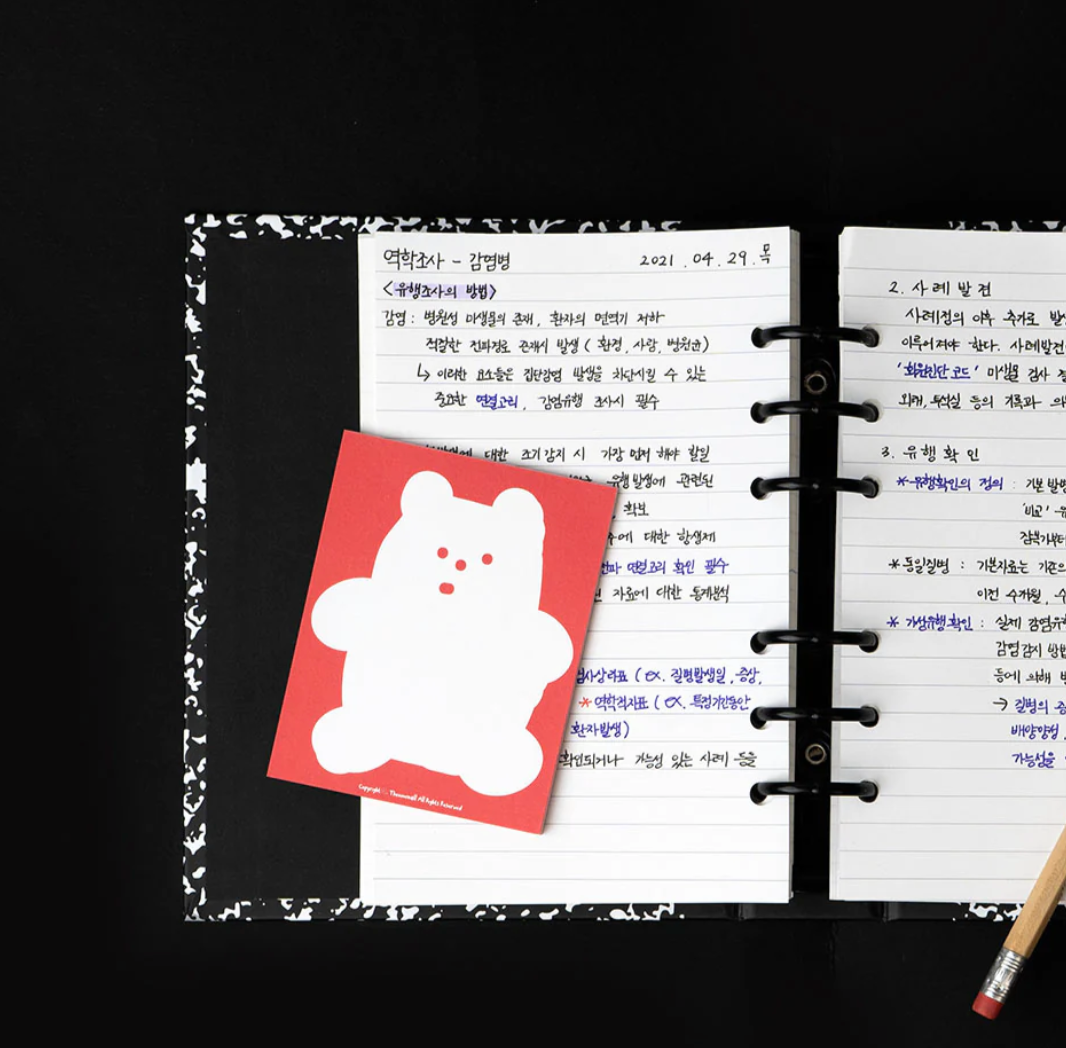 역학조사 - 감염병
2021.04.29.목
<유행조사의 방법>
감염 : 병원성 미생물의 존재, 환자의 면역기 저하
적절한 전파경로 존재시 발생 ( 환경, 사람, 병원균)
↳ 이러한 요소들은 집단감염 발생을 차단시킬 수 있는
중요한 연결고리, 감염유행 조사시 필수
대한 조기감지 시 가장 먼저 해야 할일
유행발생에 관련된
확보
대한 항생제
연결고리 확인 필수
자료에 대한 통계분석
(ex. 질병발생일, 증상,
* 역학적자표 (ex. 특정기간동안
환자발생)
확인되거나 가능성 있는 사례 등을
Copyright Threeeeest All Rights Reserved
2. 사례발견
사례정의 이후 추가로
이루어져야 한다. 사례발견
'퇴원진단코드' 미생물 검사
외래, 투석실 등의 기록과
3. 유행확인
* 유행확인의 정의 : 기본
'비교'
* 동일질병 : 기본자료는 기존의
이전 수개월,
* 가성유행확인 : 실제 감염유행
감염감지 방법
등에 의해
→ 질병의
배양양성,
가능성을